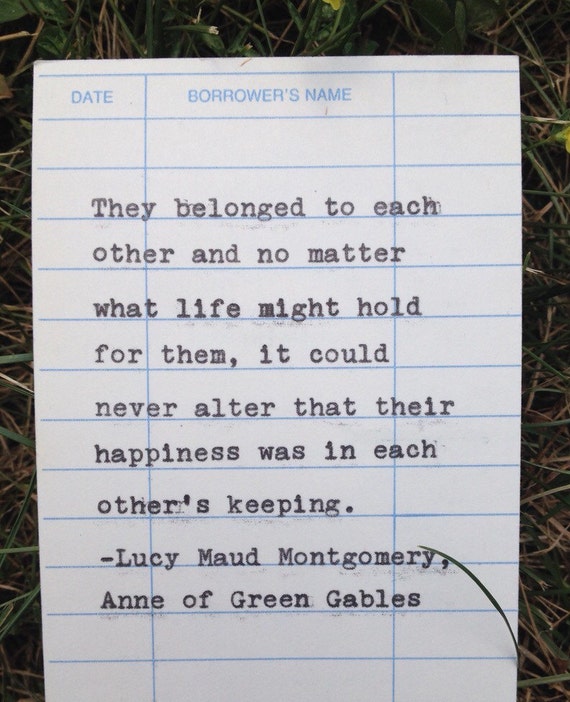 DATE BORROWER'S NAME
They belonged to each
other and no matter
what life might hold
for them, it could
never alter that their
happiness was in each
other's keeping.
-Lucy Maud Montgomery,
Anne of Green Gables